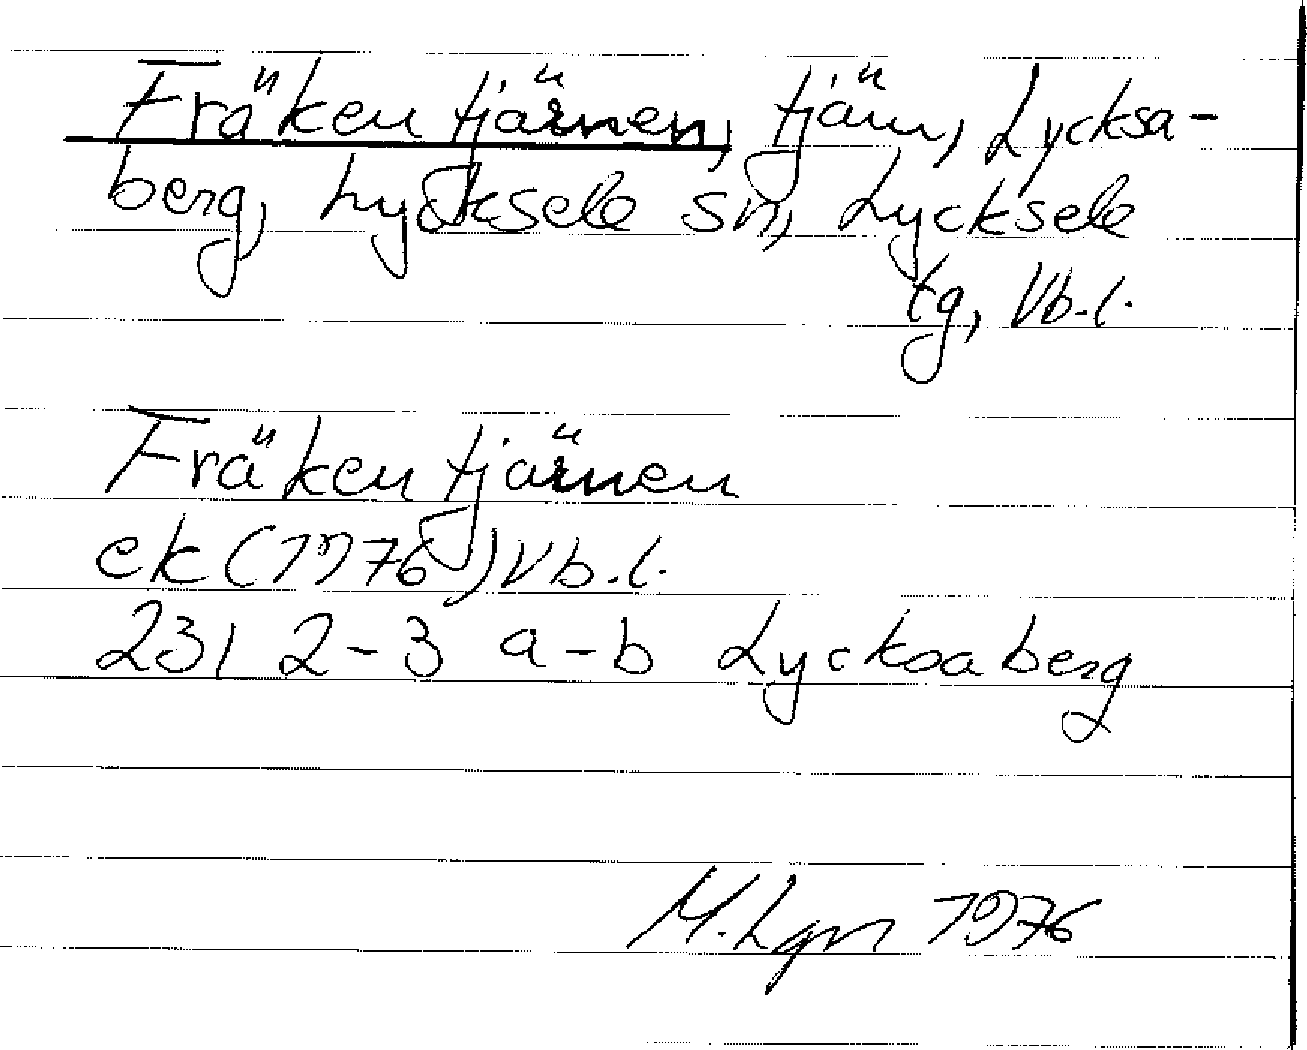 Fräkentjärnen, tjärn, Lycksa-
berg, Lycksele sn, Lycksele
tg, Vb.l.
Fräkentjärnen
ek (1976) Vb.l.
231 2-3 a-b Lycksaberg
M. Lgn 1976